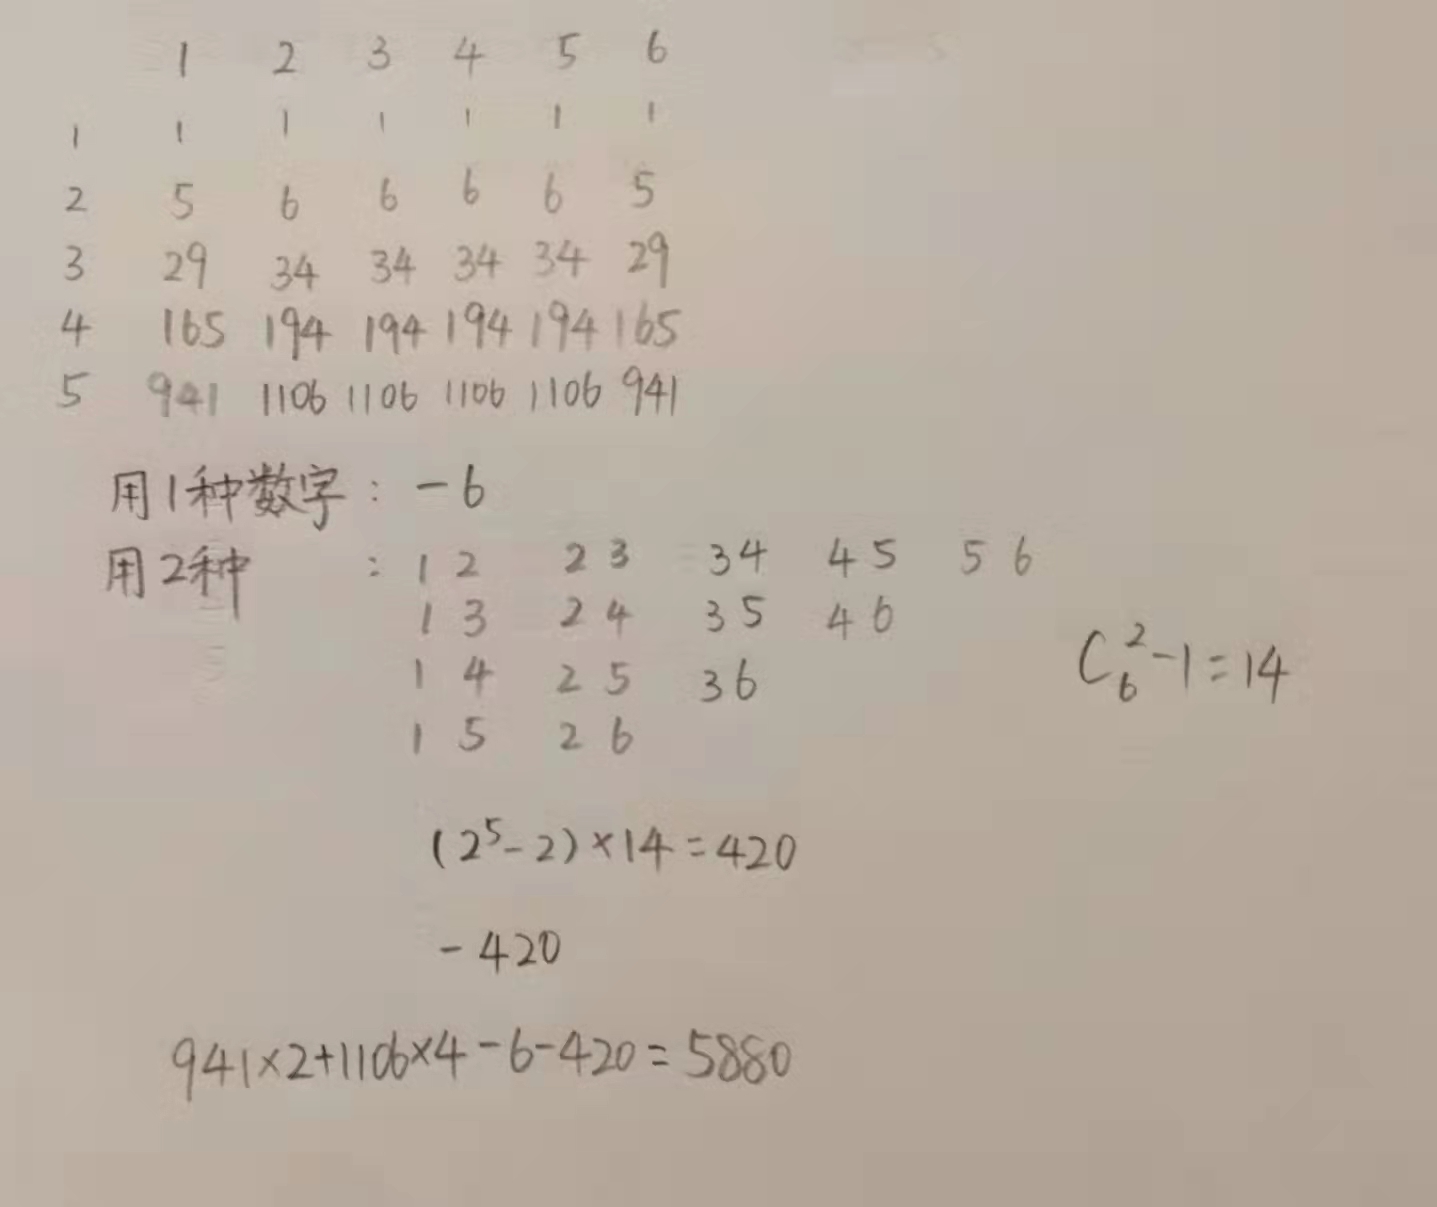 1 2 3 4 5 6
1 1 1 1 1 1 1
2 5 6 6 6 6 5
3 29 34 34 34 34 29
4 165 194 194 194 194 165
5 941 1106 1106 1106 1106 941
用1种数字: -6
用2种 : 1 2 2 3 3 4 4 5 5 6
1 3 2 4 3 5 4 6
1 4 2 5 3 6
C₆²-1=14
1 5 2 6
(2⁵-2)×14=420
-420
941×2+1106×4-6-420=5880